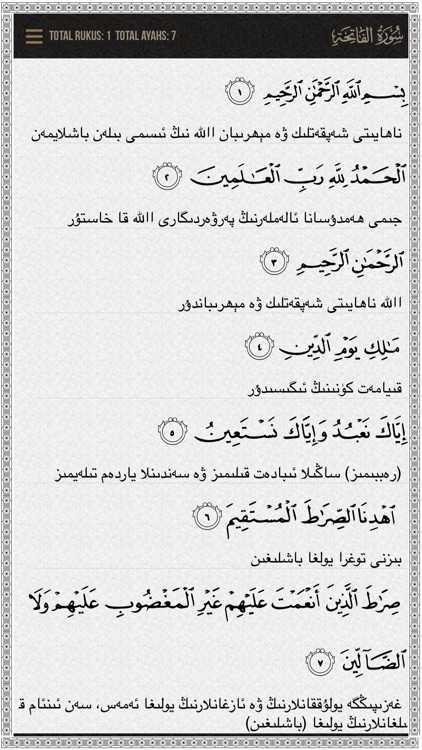 TOTAL RUKUS: 1 TOTAL AYAHS: 7
سُورَةُ الفَاتِحَة
بِسْمِ ٱللَّهِ ٱلرَّحْمَٰنِ ٱلرَّحِيمِ ١
ناھايىتى شەپقەتلىك ۋە مېھرىبان اﷲ نىڭ ئىسمى بىلەن باشلايمەن
ٱلْحَمْدُ لِلَّهِ رَبِّ ٱلْعَـٰلَمِينَ ٢
جىمى ھەمدۇسانا ئالەملەرنىڭ پەرۋەردىگارى اﷲ قا خاستۇر
ٱلرَّحْمَٰنِ ٱلرَّحِيمِ ٣
اﷲ ناھايىتى شەپقەتلىك ۋە مېھرىباندۇر
مَـٰلِكِ يَوْمِ ٱلدِّينِ ٤
قىيامەت كۈنىنىڭ ئىگىسىدۇر
إِيَّاكَ نَعْبُدُ وَإِيَّاكَ نَسْتَعِينُ ٥
(رەببىمىز) ساڭىلا ئىبادەت قىلىمىز ۋە سەندىنلا ياردەم تىلەيمىز
ٱهْدِنَا ٱلصِّرَٰطَ ٱلْمُسْتَقِيمَ ٦
بىزنى توغرا يولغا باشلىغىن
صِرَٰطَ ٱلَّذِينَ أَنْعَمْتَ عَلَيْهِمْ غَيْرِ ٱلْمَغْضُوبِ عَلَيْهِمْ وَلَا
ٱلضَّآلِّينَ ٧
غەزىپىڭگە يولۇققانلارنىڭ ۋە ئازغانلارنىڭ يولىغا ئەمەس، سەن ئىنئام ق
ىلغانلارنىڭ يولىغا (باشلىغىن)